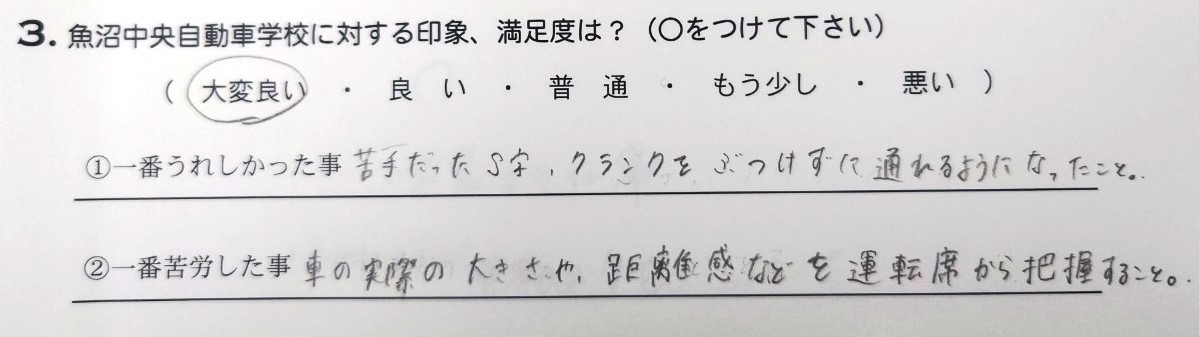 3. 魚沼中央自動車学校に対する印象、満足度は？（〇をつけて下さい）
（ 大変良い ・ 良 い ・ 普 通 ・ もう少し ・ 悪い ）
①一番うれしかった事 苦手だったS字、クランクをぶつけずに通れるようになったこと。
②一番苦労した事 車の実際の大きさや、距離感などを運転席から把握すること。